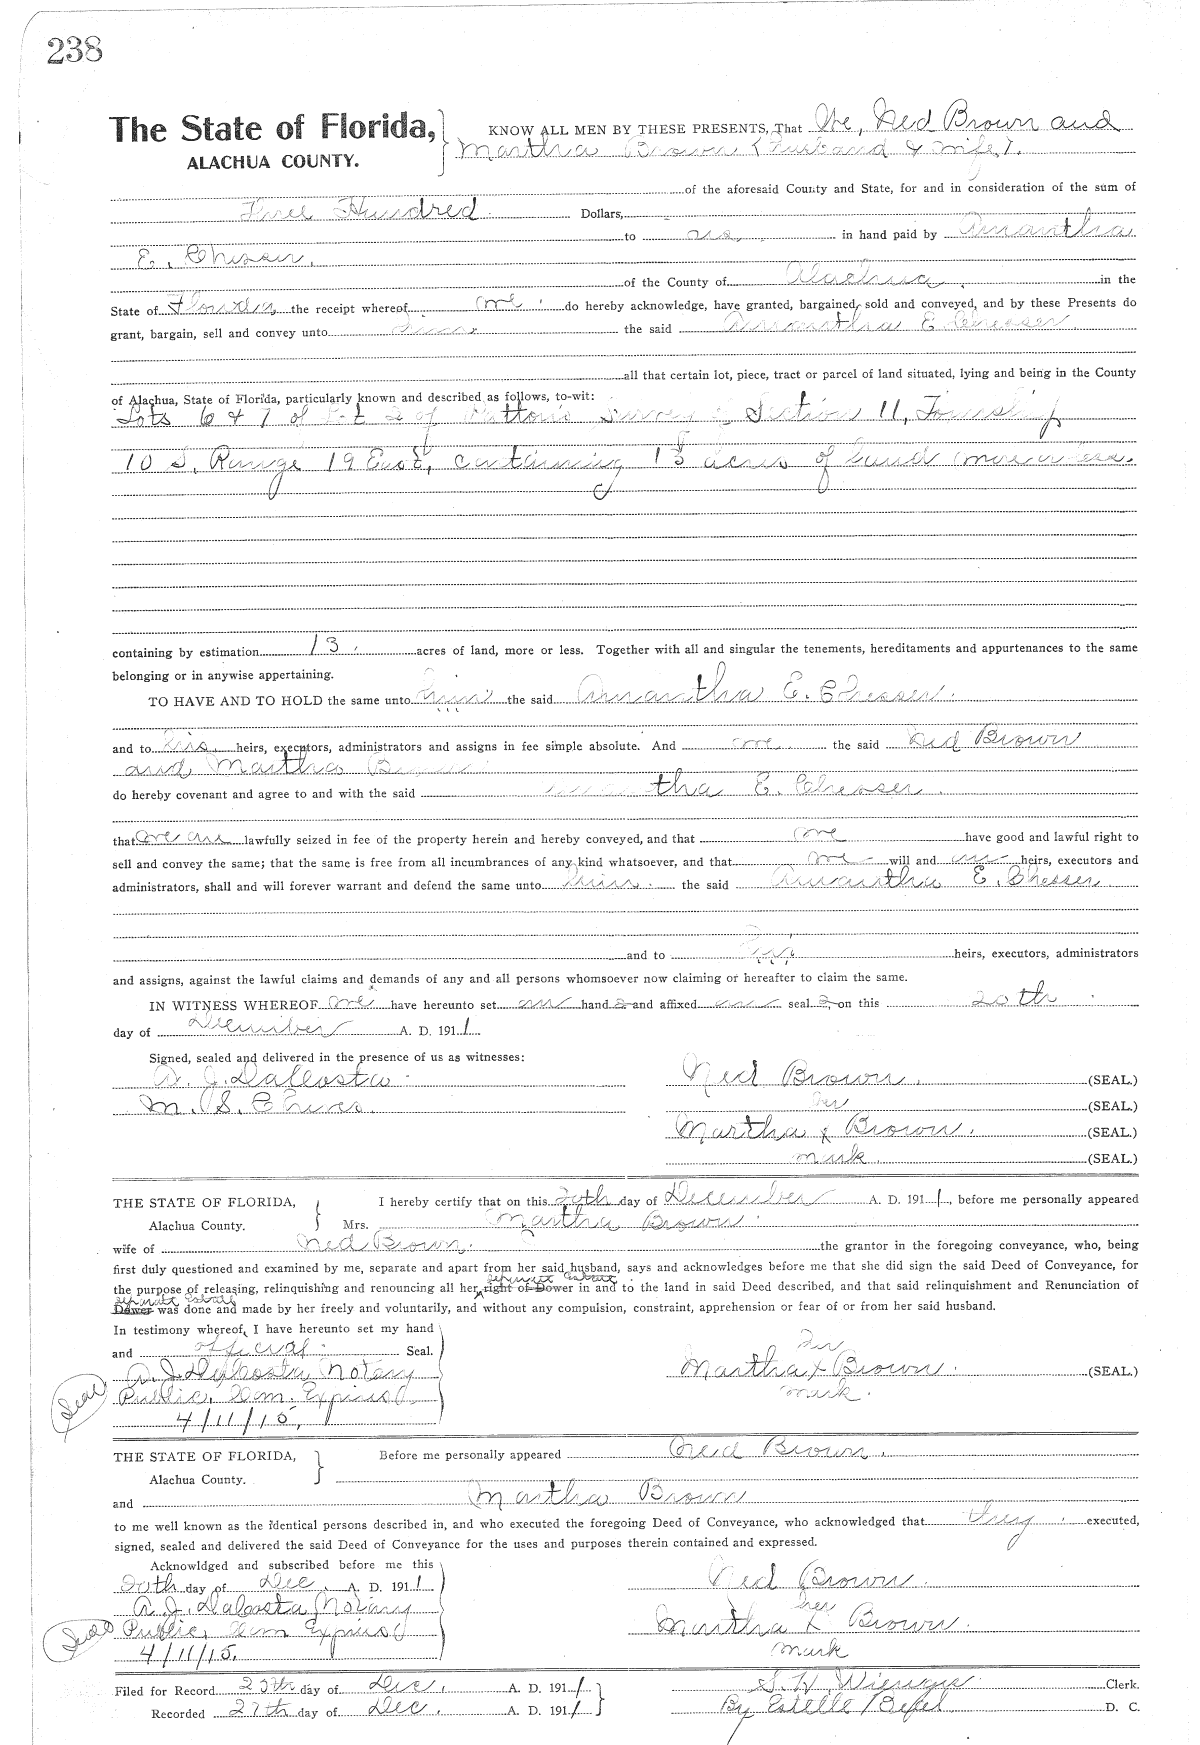 238
The State of Florida, KNOW ALL MEN BY THESE PRESENTS, That We, Ned Brown and
ALACHUA COUNTY. Martha Brown (husband & wife).
of the aforesaid County and State, for and in consideration of the sum of
Three Hundred Dollars,
to us, in hand paid by Amantha
E. Chesser,
of the County of Alachua, in the
State of Florida, the receipt whereof we do hereby acknowledge, have granted, bargained, sold and conveyed, and by these Presents do
grant, bargain, sell and convey unto him the said Amantha E Chesser
all that certain lot, piece, tract or parcel of land situated, lying and being in the County
of Alachua, State of Florida, particularly known and described as follows, to-wit:
Lots 6 & 7 of Lot 2 of survey of Section 11, Township
10 S. Range 19 East, containing 13 acres of land more or less.
containing by estimation 13. acres of land, more or less. Together with all and singular the tenements, hereditaments and appurtenances to the same
belonging or in anywise appertaining.
TO HAVE AND TO HOLD the same unto him the said Amantha E. Chesser.
and to his heirs, executors, administrators and assigns in fee simple absolute. And we the said Ned Brown
and Martha Brown
do hereby covenant and agree to and with the said Amantha E. Chesser.
that we are lawfully seized in fee of the property herein and hereby conveyed, and that we have good and lawful right to
sell and convey the same; that the same is free from all incumbrances of any kind whatsoever, and that we will and our heirs, executors and
administrators, shall and will forever warrant and defend the same unto him the said Amantha E. Chesser
and to his heirs, executors, administrators
and assigns, against the lawful claims and demands of any and all persons whomsoever now claiming or hereafter to claim the same.
IN WITNESS WHEREOF we have hereunto set our hand s and affixed our seal s on this 20th
day of December A. D. 1911.
Signed, sealed and delivered in the presence of us as witnesses:
A. J. DaCosta Ned Brown. (SEAL.)
M. S. Cheves. her (SEAL.)
Martha x Brown. (SEAL.)
mark. (SEAL.)
THE STATE OF FLORIDA, I hereby certify that on this 20th day of December A. D. 1911, before me personally appeared
Alachua County. Mrs. Martha Brown
wife of Ned Brown. the grantor in the foregoing conveyance, who, being
first duly questioned and examined by me, separate and apart from her said husband, says and acknowledges before me that she did sign the said Deed of Conveyance, for
separate estate
the purpose of releasing, relinquishing and renouncing all her right of Dower in and to the land in said Deed described, and that said relinquishment and Renunciation of
separate estate
Dower was done and made by her freely and voluntarily, and without any compulsion, constraint, apprehension or fear of or from her said husband.
In testimony whereof, I have hereunto set my hand
and official Seal. her
A. J. DaCosta, Notary Martha x Brown. (SEAL.)
Seal Public, Com. Expires mark.
4/11/15,
THE STATE OF FLORIDA, Before me personally appeared Ned Brown,
Alachua County.
and Martha Brown
to me well known as the identical persons described in, and who executed the foregoing Deed of Conveyance, who acknowledged that they executed,
signed, sealed and delivered the said Deed of Conveyance for the uses and purposes therein contained and expressed.
Acknowldged and subscribed before me this
20th day of Dec. A. D. 1911 Ned Brown.
A. J. DaCosta, Notary her
Seal Public, Com Expires Martha x Brown.
4/11/15. mark
Filed for Record 27th day of Dec. A. D. 1911 Clerk.
Recorded 27th day of Dec. A. D. 1911 By Estelle D. C.